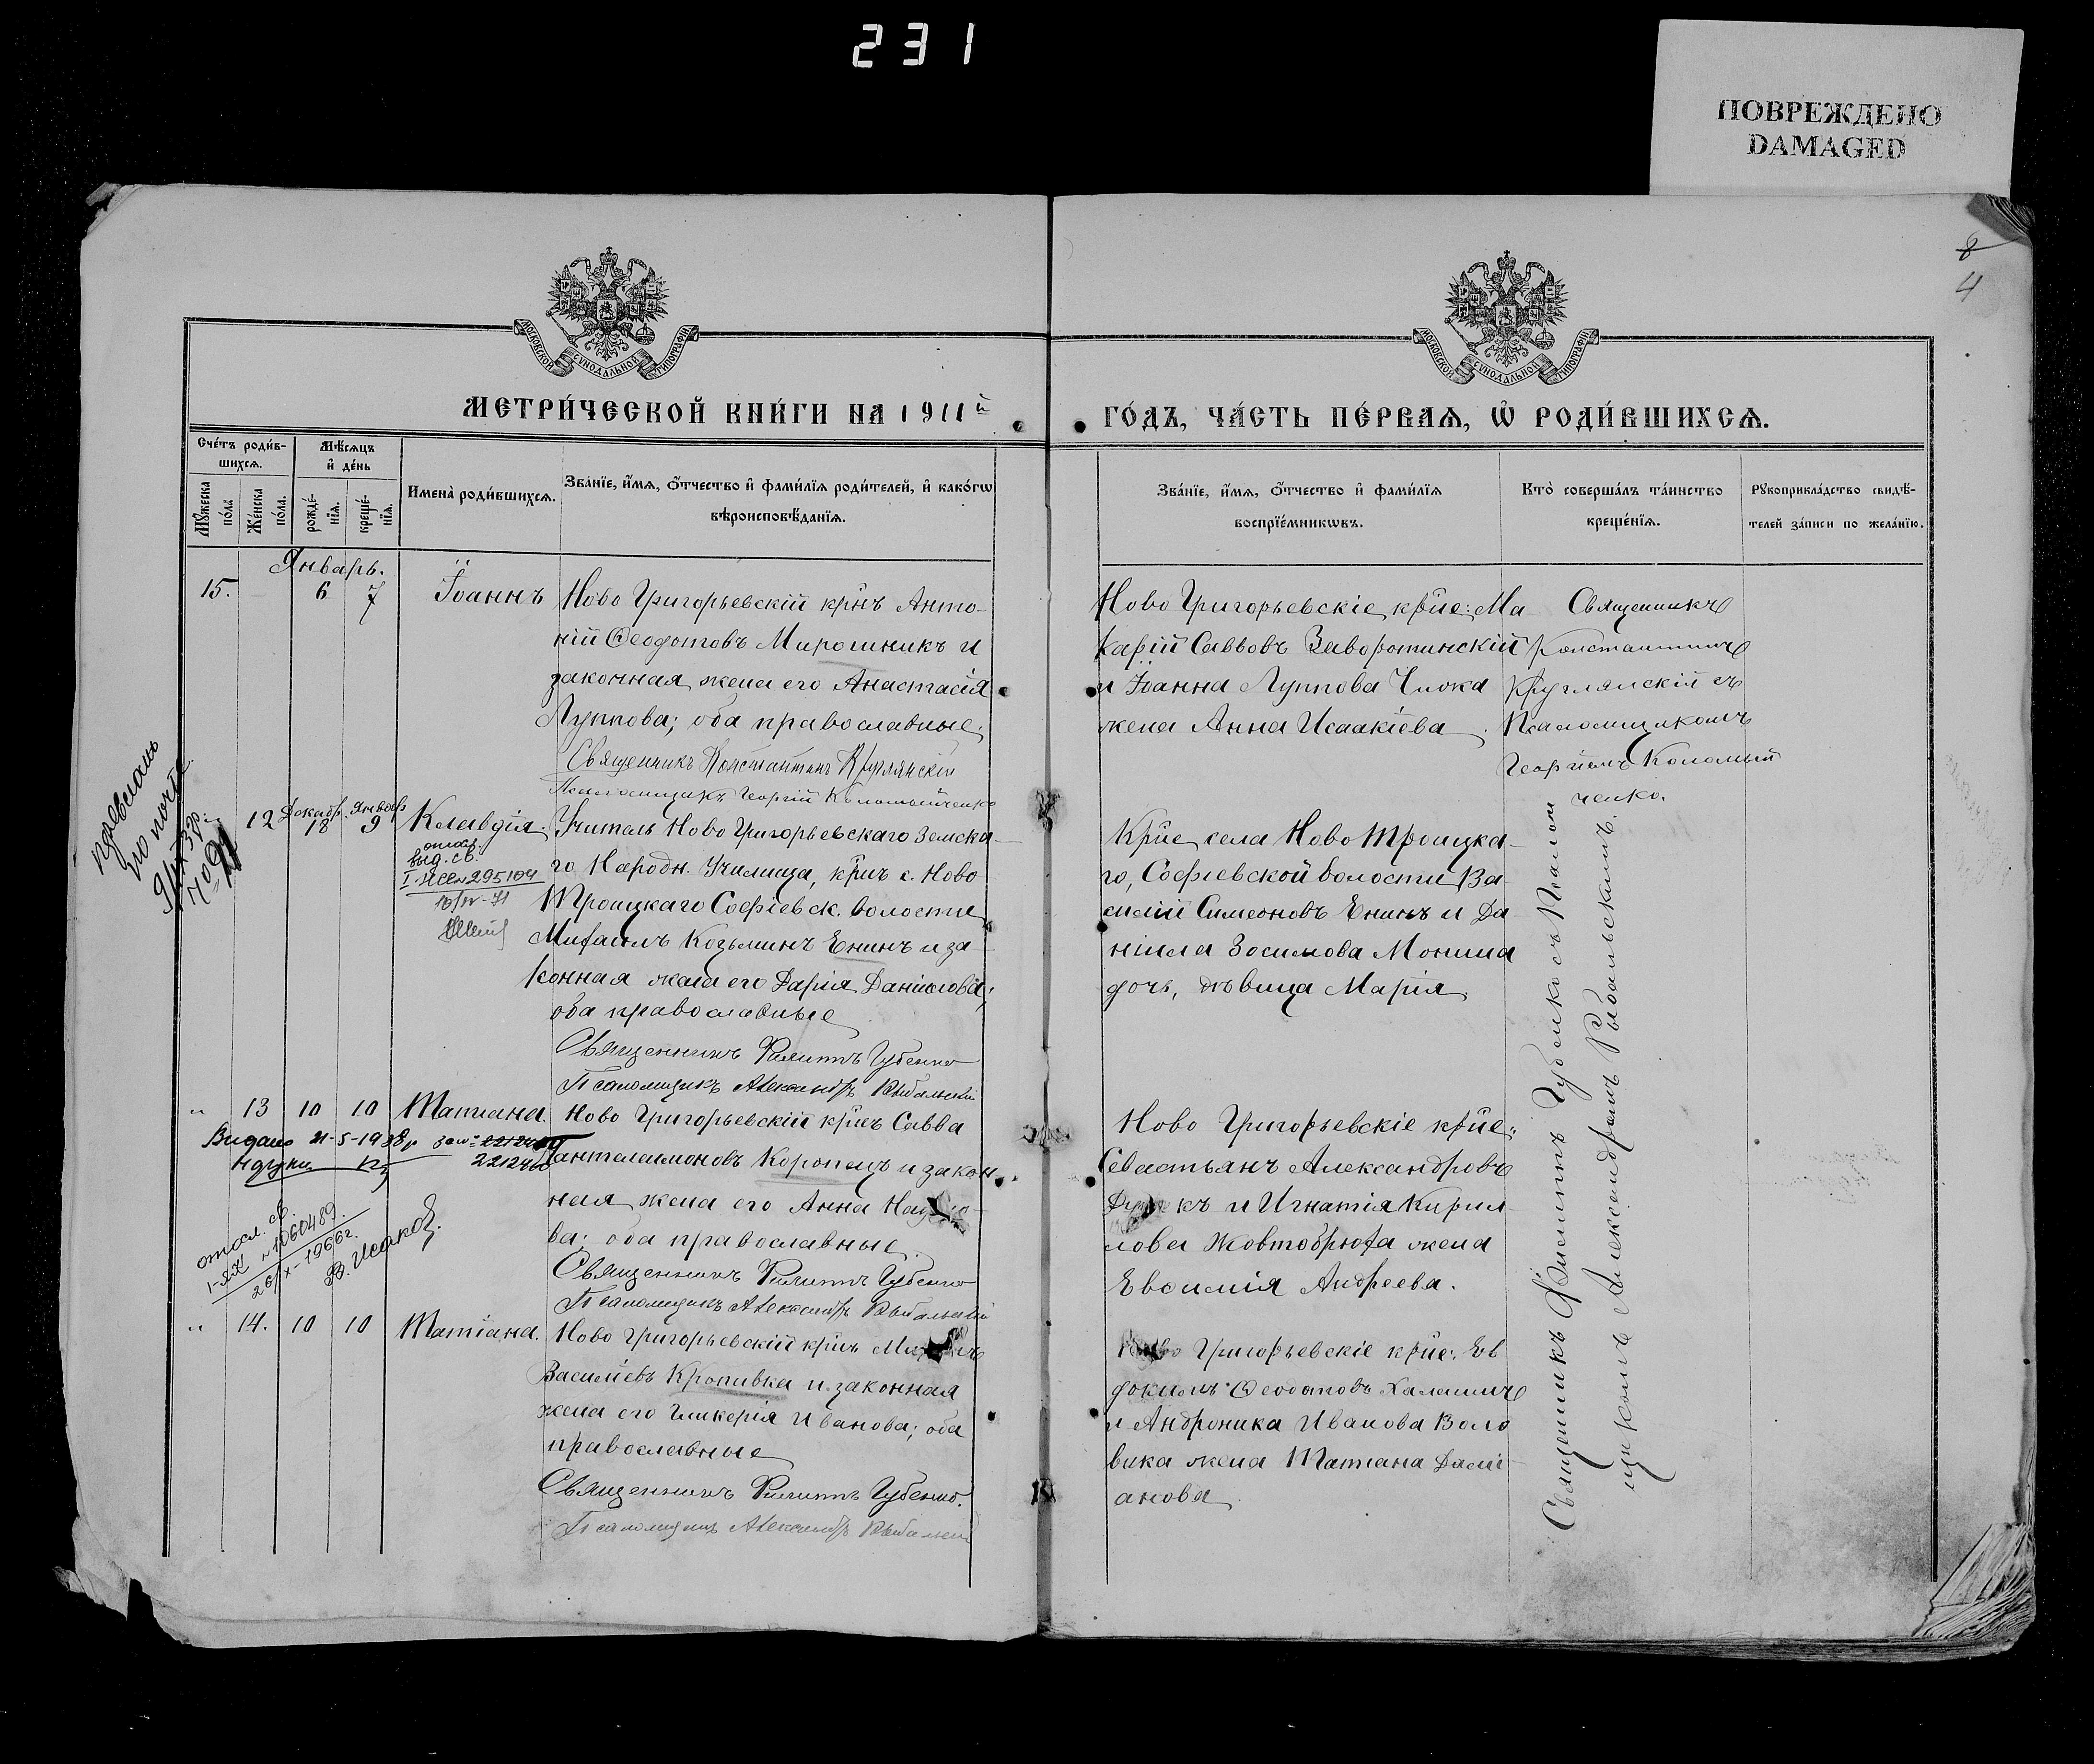 231
ПОВРЕЖДЕНО
DAMAGED
8
4
МОСКОВСКОЙ СѴНОДАЛЬНОЙ ТИПОГРАФІИ
МОСКОВСКОЙ СѴНОДАЛЬНОЙ ТИПОГРАФІИ
МЕТРИ́ЧЕСКОЙ КНИ́ГИ НА 1911й
ГО́ДЪ, ЧА́СТЬ ПЕ́РВАѦ, Ѡ РОДИ́ВШИХСѦ.
Сче́тъ роди́в-
шихсѧ.
Мѣ́сѧцъ
и҆ де́нь
Мꙋ́жеска по́ла
Же́нска по́ла.
рожде́-
нїѧ.
креще́-
нїѧ.
Имена̀ роди́вшихсѧ.
Зва́нїе, и҆́мѧ, ѻ҆́тчество и҆ фами́лїѧ роди́телей, и҆ како́гѡ
вѣроисповѣ́данїѧ.
Зва́нїе, и҆́мѧ, ѻ҆́тчество и҆ фами́лїѧ
воспрїе́мникѡвъ.
Кто̀ соверша́лъ та́инство
креще́нїѧ.
Рꙋкоприкла́дство свидѣ́-
телей за́писи по жела́нїю.
Январь.
15. 6 7 Іоаннъ
Ново Григорьевскій крнъ Анто-
ній Ѳеодотовъ Мирошникъ и
законная жена его Анастасія
Луппова; оба православные.
Священникъ Константинъ Круглянскій
Псаломщикъ Георгій Коломийченко
Ново Григорьевскіе кріне: Ма
карій Саввовъ Заворотинскій
и Іоанна Луппова Чмока
жена Анна Исаакіева.
Священникъ
Константинъ
Круглянскій съ
Псаломщикомъ
Георгіемъ Коломий
ченко.
по почте
12 Декабр. 18 Январ 9 Клавдія
выд. св.
295104
Учитель Ново Григорьевскаго Земска-
го Народн. Училища, крнъ с. Ново
Троицкаго Софіевск. волости
Михаилъ Козьминъ Енинъ и за-
конная жена его Дарія Даніилова;
оба православные
Священникъ Филиппъ Губенко
Псаломщикъ Александръ Рыбальскій
Кріне села Ново Троицка-
го, Софіевской волости Ва-
силій Симеоновъ Енинъ и Да-
ніила Зосимова Монина
дочь, дѣвица Марія
Священникъ Филиппъ Губенко съ Псалом
щикомъ Александромъ Рыбальскимъ.
" 13 10 10 Татіана.
Видано 21-5-1938р
221246
Ново Григорьевскій крнъ Савва
Пантелеимоновъ Коропецъ и закон-
ная жена его Анна
ва; оба православные.
Священникъ Филиппъ Губенко
Псаломщикъ Александръ Рыбальскій
Ново Григорьевскіе кріне:
Севастьянъ Александровъ
къ и Игнатія Кирил
лова Жовтобрюха жена
Евѳимія Андреева.
№1060489.
26/X-1966г.
В. Исаков.
" 14. 10 10 Татіана.
Ново Григорьевскій крнъ
Василіевъ Кропивка и законная
жена его Гликерія Иванова; оба
православные
Священникъ Филиппъ Губенко.
Псаломщикъ Александръ Рыбальскій
Ново Григорьевскіе кріне: Ев
докимъ Ѳеодотовъ Халашинъ
и Андроника Иванова Воло
вика жена Татіана Даміа
анова